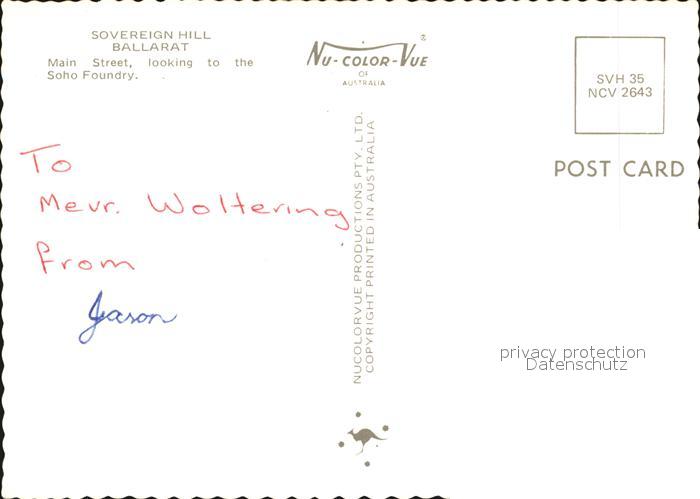 SOVEREIGN HILL
BALLARAT
Main Street, looking to the
Soho Foundry.
NU-COLOR-VUE®
OF
AUSTRALIA
SVH 35
NCV 2643
POST CARD
To
Mevr. Woltering
from
Jason
NUCOLORVUE PRODUCTIONS PTY. LTD.
COPYRIGHT PRINTED IN AUSTRALIA
privacy protection
Datenschutz